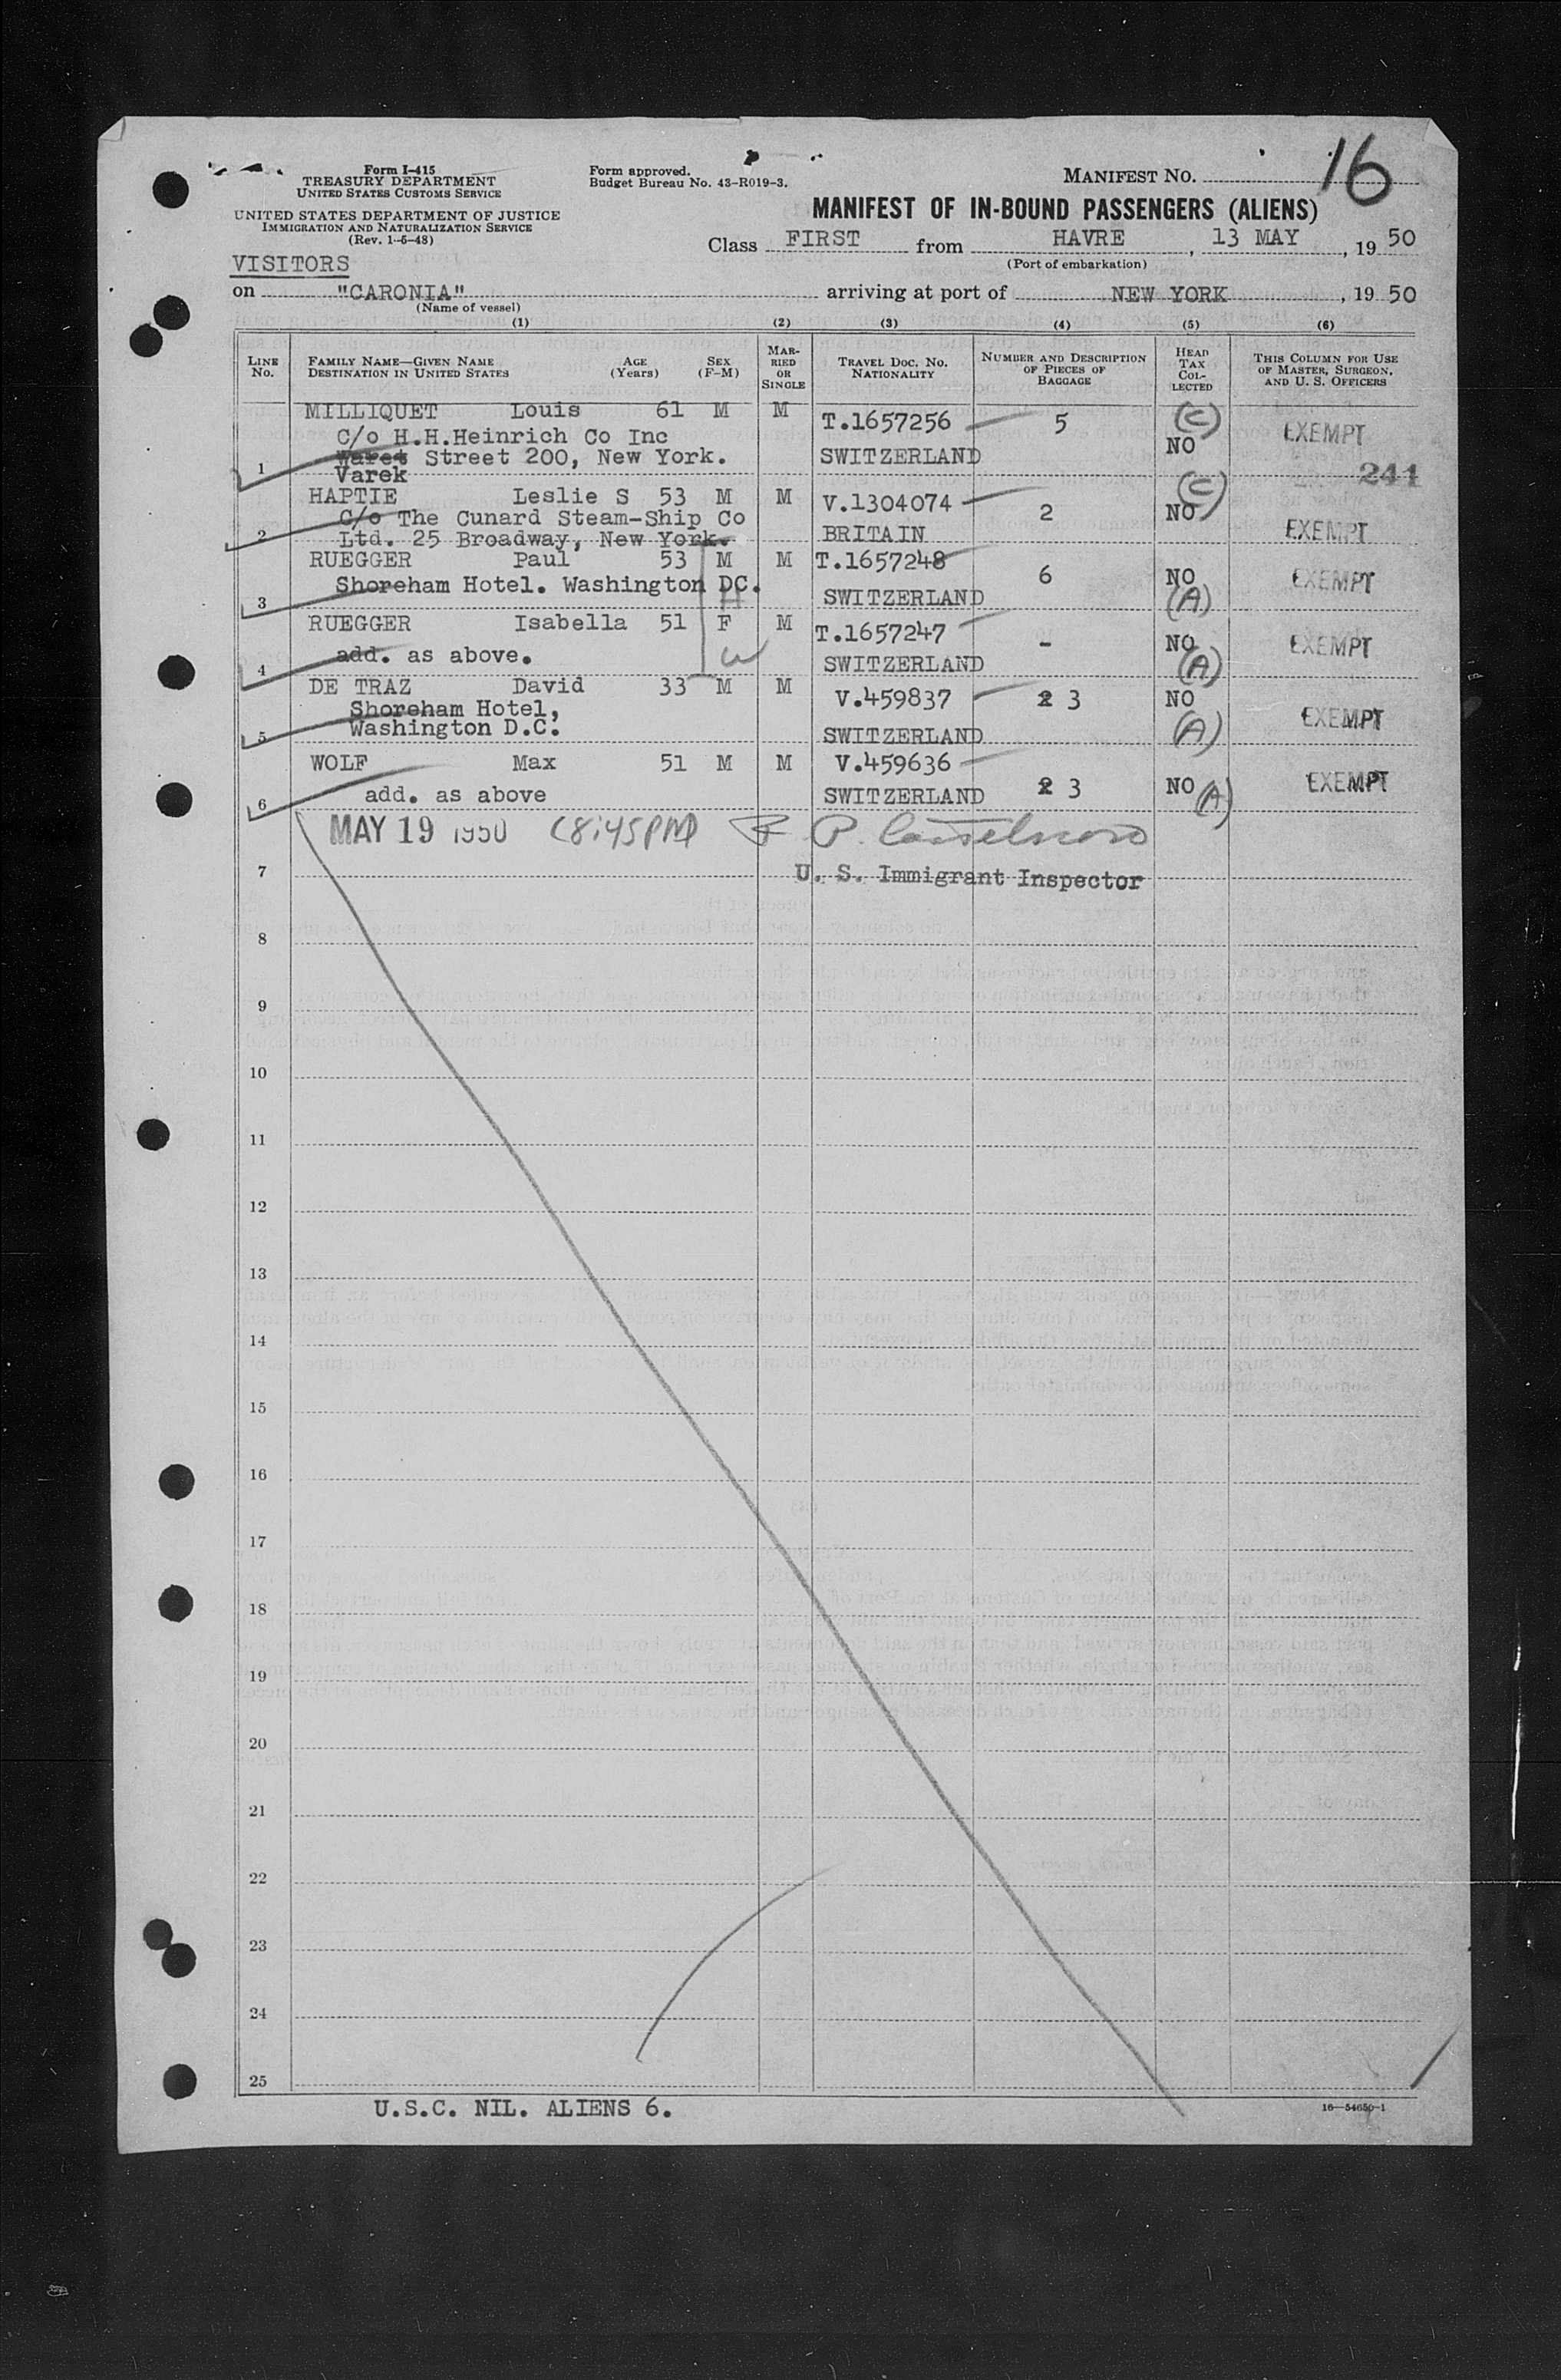 16
Form I-415
TREASURY DEPARTMENT
UNITED STATES CUSTOMS SERVICE
Form approved.
Budget Bureau No. 43-R019-3.
MANIFEST NO.
UNITED STATES DEPARTMENT OF JUSTICE
IMMIGRATION AND NATURALIZATION SERVICE
(Rev. 1-5-48)
MANIFEST OF IN-BOUND PASSENGERS (ALIENS)
Class FIRST from HAVRE, 13 MAY, 19 50
(Port of embarkation)
VISITORS
on "CARONIA" arriving at port of NEW YORK, 19 50
(Name of vessel)
(1) (2) (3) (4) (5) (6)
LINE No. FAMILY NAME—GIVEN NAME DESTINATION IN UNITED STATES AGE (Years) SEX (F-M) MARRIED OR SINGLE TRAVEL DOC. NO. NATIONALITY NUMBER AND DESCRIPTION OF PIECES OF BAGGAGE HEAD TAX COLLECTED THIS COLUMN FOR USE OF MASTER, SURGEON, AND U. S. OFFICERS
MILLIQUET Louis 61 M M T.1657256 5 (C) EXEMPT
C/o H.H.Heinrich Co Inc NO
1 Street 200, New York. SWITZERLAND 241
Varek
HAPTIE Leslie S 53 M M V.1304074 2 (C) NO EXEMPT
C/o The Cunard Steam-Ship Co
2 Ltd. 25 Broadway, New York. BRITAIN
RUEGGER Paul 53 M M T.1657248 6 NO EXEMPT
3 Shoreham Hotel. Washington DC. H SWITZERLAND (A)
RUEGGER Isabella 51 F M T.1657247 - NO EXEMPT
4 add. as above. W SWITZERLAND (A)
DE TRAZ David 33 M M V.459837 2 3 NO EXEMPT
Shoreham Hotel,
5 Washington D.C. SWITZERLAND (A)
WOLF Max 51 M M V.459636 2 3 NO (A) EXEMPT
6 add. as above SWITZERLAND
MAY 19 1950 (8:45PM)
7 U. S. Immigrant Inspector
8
9
10
11
12
13
14
15
16
17
18
19
20
21
22
23
24
25
U.S.C. NIL. ALIENS 6.
16—54650-1